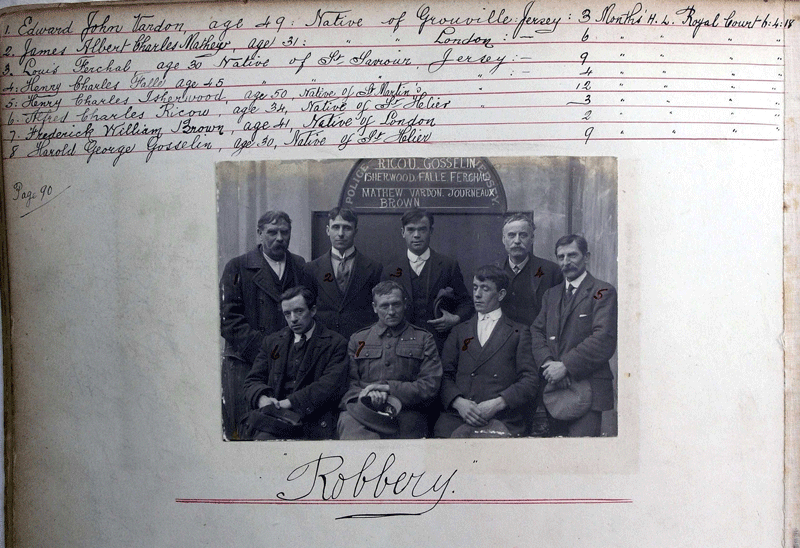 1. Edward John Vardon, age 49: Native of Grouville: Jersey: 3 Months H. L. Royal Court 6:4:18
2. James Albert Charles Mathew, age 31: " " London :— 6 " " " " "
3. Louis Ferchal, age 30 Native of St Saviour Jersey :— 9 " " " " "
4: Henry Charles Falle age 45 " " " " — 4 " " " " "
5: Henry Charles Isherwood, age 50, Native of St Martin's " 12 " " " " "
6: Alfred Charles Ricou, age 34, Native of St Helier " — 3 " " " " "
7: Frederick William Brown, age 41, Native of London 2 " " " " "
8 Harold George Gosselin, age 30, Native of St Helier 9 " " " " "
Page 90
POLICE JERSEY.
RICOU. GOSSELIN
ISHERWOOD. FALLE FERCHAL
MATHEW VARDON. JOURNEAUX
BROWN
2 3 4 5
6 7 8
"Robbery."